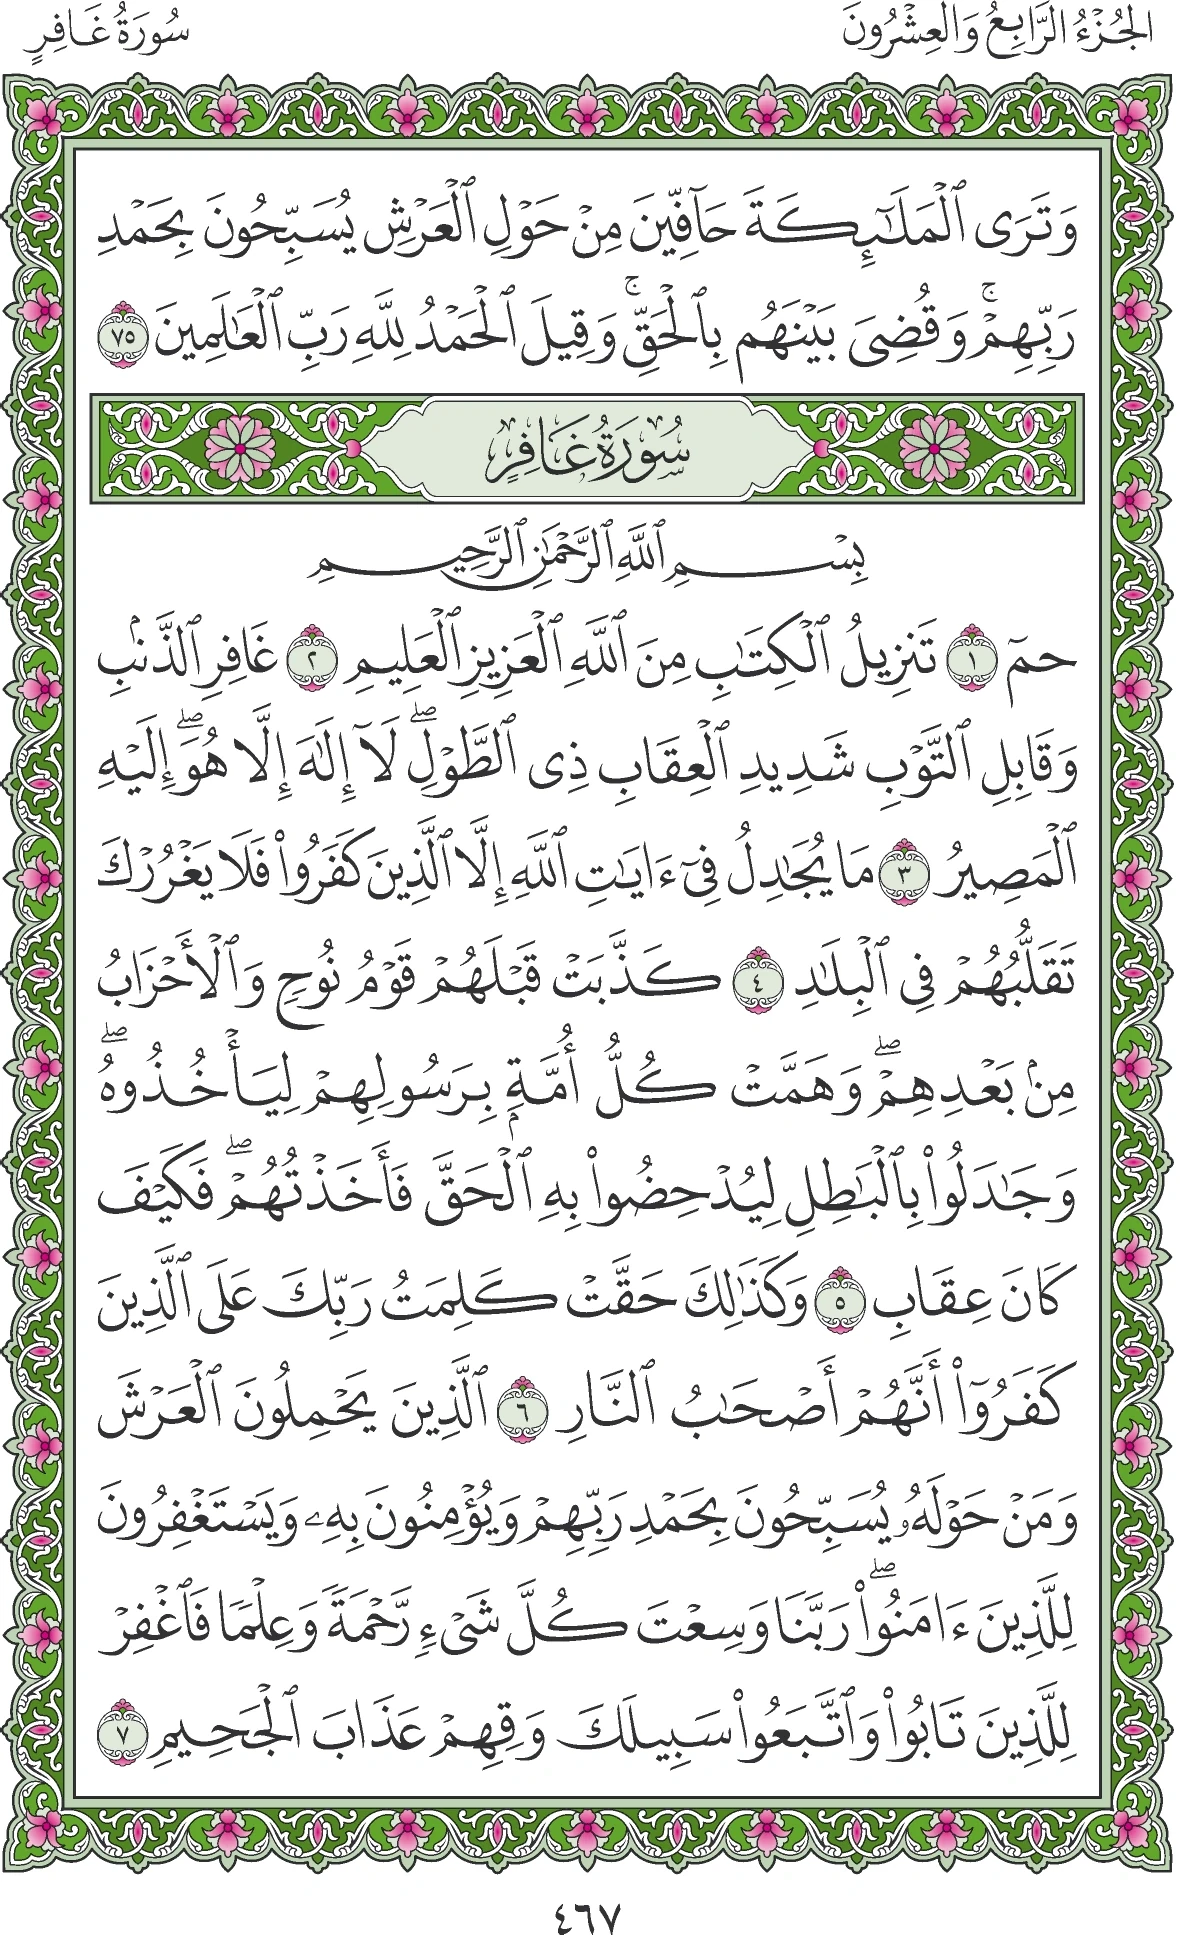 الجُزْءُ الرَّابِعُ وَالْعِشْرُونَ سُورَةُ غَافِرٍ
وَتَرَى ٱلْمَلَـٰٓئِكَةَ حَآفِّينَ مِنْ حَوْلِ ٱلْعَرْشِ يُسَبِّحُونَ بِحَمْدِ
رَبِّهِمْۚ وَقُضِىَ بَيْنَهُم بِٱلْحَقِّۚ وَقِيلَ ٱلْحَمْدُ لِلَّهِ رَبِّ ٱلْعَـٰلَمِينَ ٧٥
سُورَةُ غَافِرٍ
بِسْمِ ٱللَّهِ ٱلرَّحْمَـٰنِ ٱلرَّحِيمِ
حمٓ ١ تَنزِيلُ ٱلْكِتَـٰبِ مِنَ ٱللَّهِ ٱلْعَزِيزِ ٱلْعَلِيمِ ٢ غَافِرِ ٱلذَّنۢبِ
وَقَابِلِ ٱلتَّوْبِ شَدِيدِ ٱلْعِقَابِ ذِى ٱلطَّوْلِۖ لَآ إِلَـٰهَ إِلَّا هُوَۖ إِلَيْهِ
ٱلْمَصِيرُ ٣ مَا يُجَـٰدِلُ فِىٓ ءَايَـٰتِ ٱللَّهِ إِلَّا ٱلَّذِينَ كَفَرُوا۟ فَلَا يَغْرُرْكَ
تَقَلُّبُهُمْ فِى ٱلْبِلَـٰدِ ٤ كَذَّبَتْ قَبْلَهُمْ قَوْمُ نُوحٍ وَٱلْأَحْزَابُ
مِنۢ بَعْدِهِمْۖ وَهَمَّتْ كُلُّ أُمَّةٍۭ بِرَسُولِهِمْ لِيَأْخُذُوهُۖ
وَجَـٰدَلُوا۟ بِٱلْبَـٰطِلِ لِيُدْحِضُوا۟ بِهِ ٱلْحَقَّ فَأَخَذْتُهُمْۖ فَكَيْفَ
كَانَ عِقَابِ ٥ وَكَذَٰلِكَ حَقَّتْ كَلِمَتُ رَبِّكَ عَلَى ٱلَّذِينَ
كَفَرُوٓا۟ أَنَّهُمْ أَصْحَـٰبُ ٱلنَّارِ ٦ ٱلَّذِينَ يَحْمِلُونَ ٱلْعَرْشَ
وَمَنْ حَوْلَهُۥ يُسَبِّحُونَ بِحَمْدِ رَبِّهِمْ وَيُؤْمِنُونَ بِهِۦ وَيَسْتَغْفِرُونَ
لِلَّذِينَ ءَامَنُوا۟ۖ رَبَّنَا وَسِعْتَ كُلَّ شَىْءٍ رَّحْمَةً وَعِلْمًا فَٱغْفِرْ
لِلَّذِينَ تَابُوا۟ وَٱتَّبَعُوا۟ سَبِيلَكَ وَقِهِمْ عَذَابَ ٱلْجَحِيمِ ٧
٤٦٧